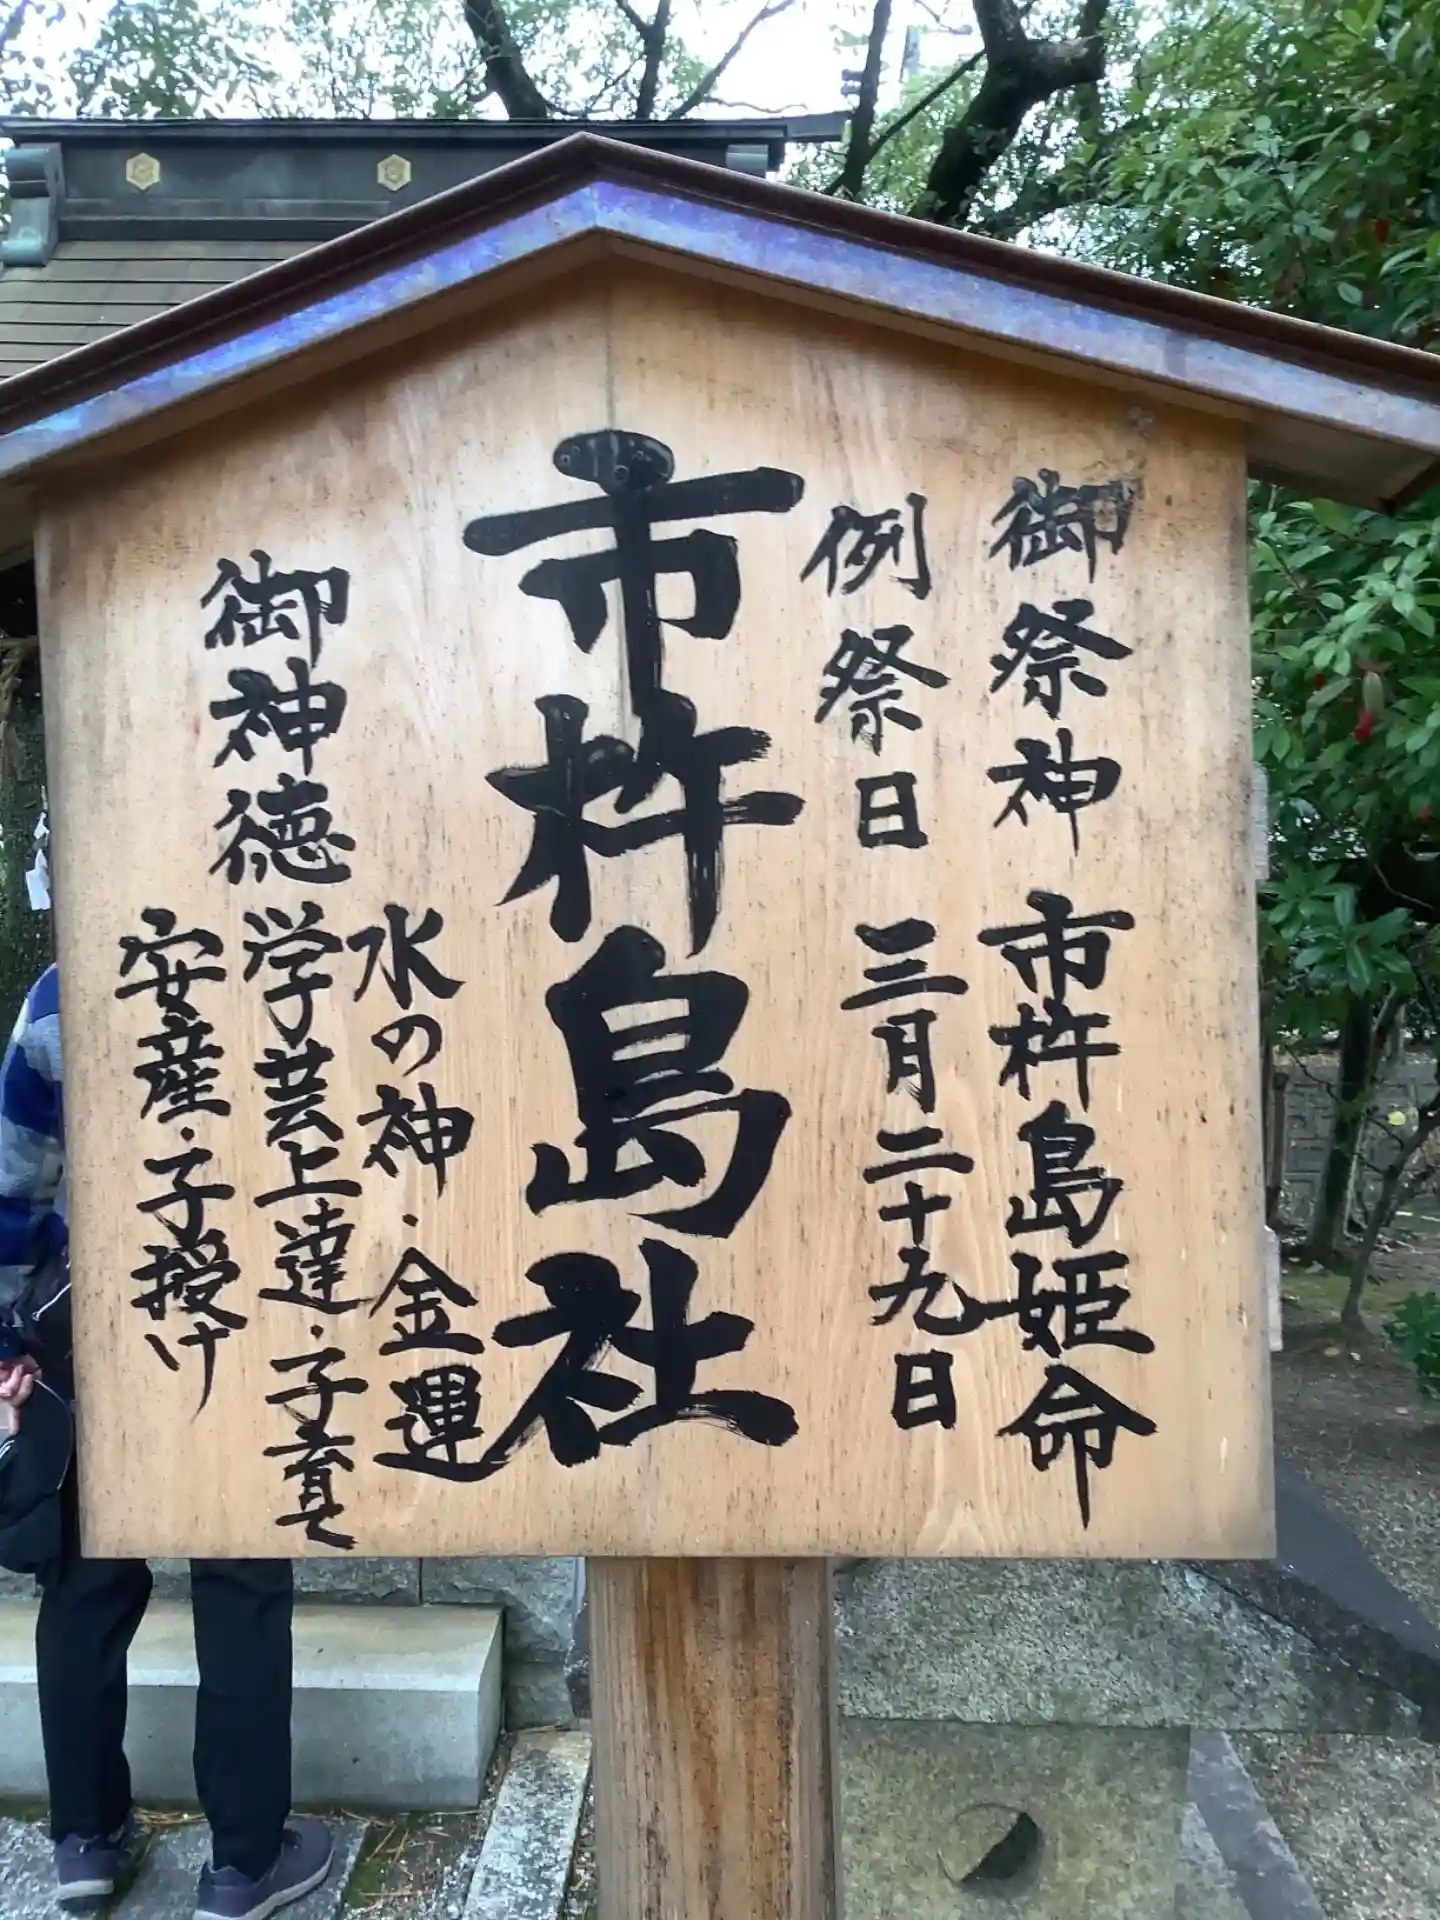 御祭神 市杵島姫命
例祭日 三月二十九日
市杵島社
御神徳
水の神・金運
学芸上達・子育て
安産・子授け